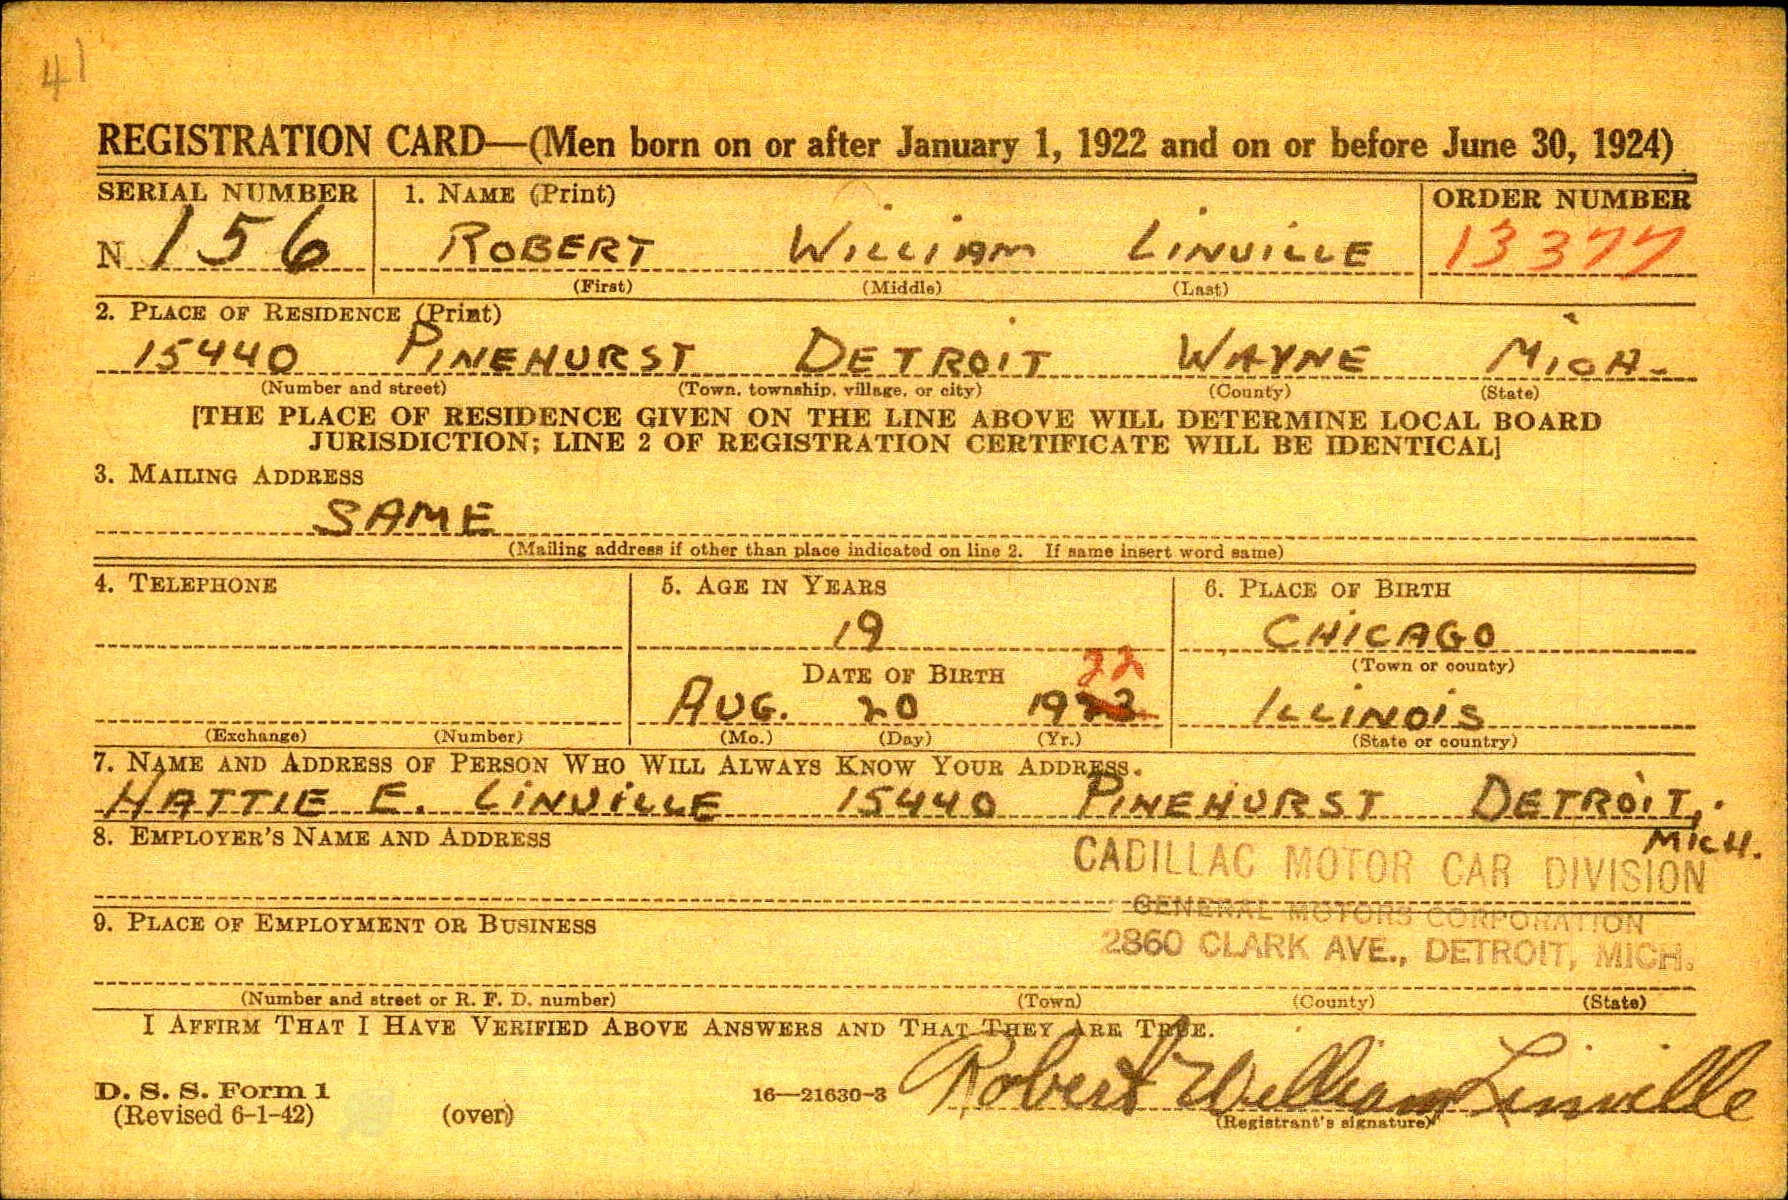 41
REGISTRATION CARD—(Men born on or after January 1, 1922 and on or before June 30, 1924)
SERIAL NUMBER 1. NAME (Print) ORDER NUMBER
N 156 ROBERT WILLIAM LINVILLE 13377
(First) (Middle) (Last)
2. PLACE OF RESIDENCE (Print)
15440 PINEHURST DETROIT WAYNE MICH.
(Number and street) (Town, township, village, or city) (County) (State)
[THE PLACE OF RESIDENCE GIVEN ON THE LINE ABOVE WILL DETERMINE LOCAL BOARD
JURISDICTION; LINE 2 OF REGISTRATION CERTIFICATE WILL BE IDENTICAL]
3. MAILING ADDRESS
SAME
(Mailing address if other than place indicated on line 2. If same insert word same)
4. TELEPHONE 5. AGE IN YEARS 6. PLACE OF BIRTH
19 CHICAGO
(Town or county)
DATE OF BIRTH 22
AUG. 20 1923 ILLINOIS
(Exchange) (Number) (Mo.) (Day) (Yr.) (State or country)
7. NAME AND ADDRESS OF PERSON WHO WILL ALWAYS KNOW YOUR ADDRESS.
HATTIE E. LINVILLE 15440 PINEHURST DETROIT,
MICH.
8. EMPLOYER'S NAME AND ADDRESS
CADILLAC MOTOR CAR DIVISION
GENERAL MOTORS CORPORATION
9. PLACE OF EMPLOYMENT OR BUSINESS
2860 CLARK AVE., DETROIT, MICH.
(Number and street or R. F. D. number) (Town) (County) (State)
I AFFIRM THAT I HAVE VERIFIED ABOVE ANSWERS AND THAT THEY ARE TRUE.
Robert William Linville
D. S. S. Form 1 16—21630-3
(Revised 6-1-42) (over) (Registrant's signature)